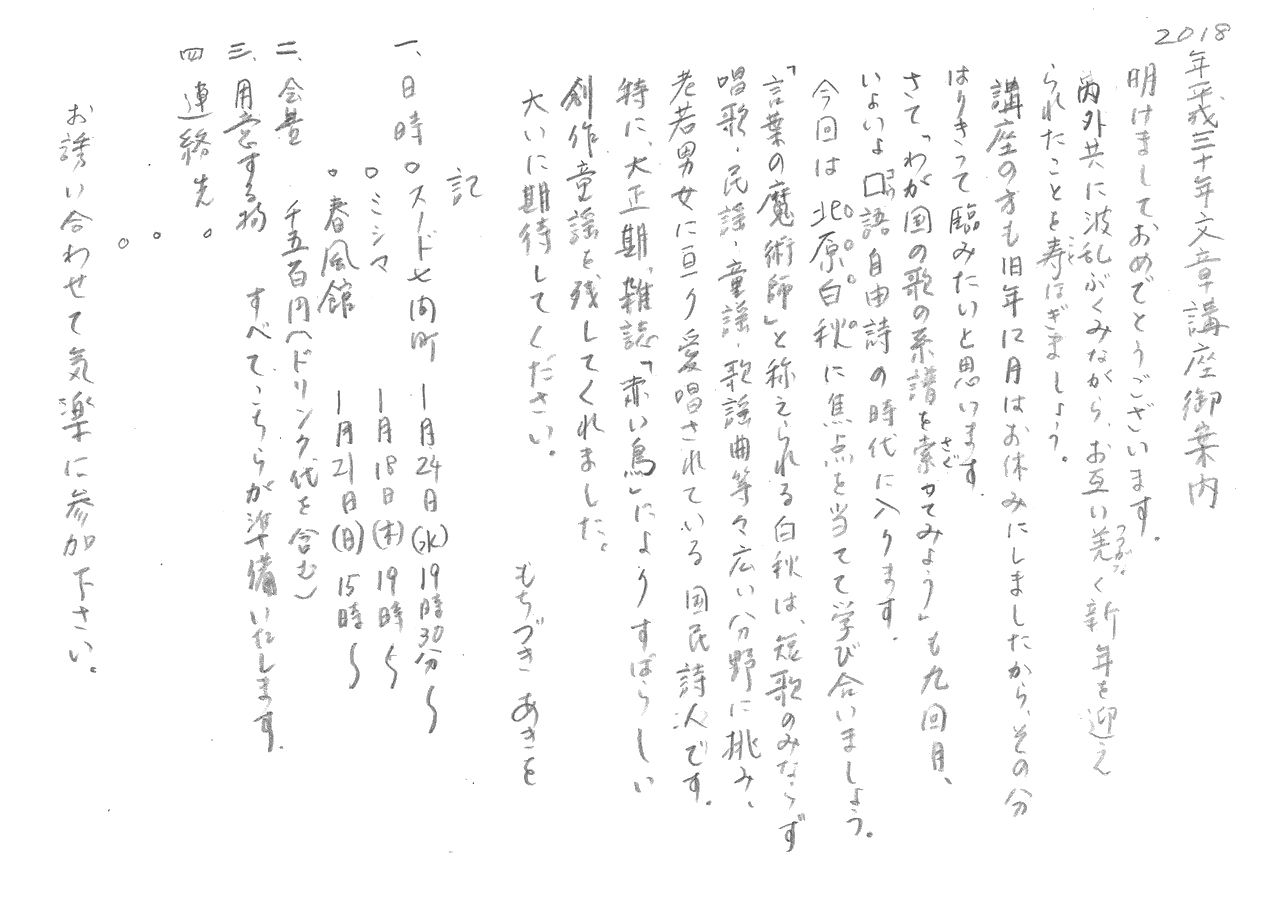 2018年平成三十年文章講座御案内
明けましておめでとうございます。
内外共に波乱ぶくみながら、お互い恙（つつがな）く新年を迎え
られたことを寿（こと）ほぎましょう。
講座の方も旧年12月はお休みにしましたから、その分
はりきって臨みたいと思います。
さて「わが国の歌の系譜を索（さぐ）ってみよう」も九回目、
いよいよ口語（コウゴ）自由詩の時代に入ります。
今回は北原白秋に焦点を当てて学び合いましょう。
「言葉の魔術師」と称えられる白秋は、短歌のみならず
唱歌・民謡・童謡・歌謡曲等々広い分野に挑み、
老若男女に亘り愛唱されている国民詩人です。
特に、大正期、雑誌「赤い鳥」によりすばらしい
創作童謡を残してくれました。
大いに期待してください。
もちづきあきを
記
一、日時 ○スード七間町 1月24日(水)19時30分〜
○ミシマ 1月18日(木)19時〜
○春風館 1月21日(日)15時〜
二、会費 千五百円(ドリンク代を含む)
三、用意する物 すべてこちらが準備いたします。
四 連絡先 ○
○
○
お誘い合わせて気楽に参加下さい。